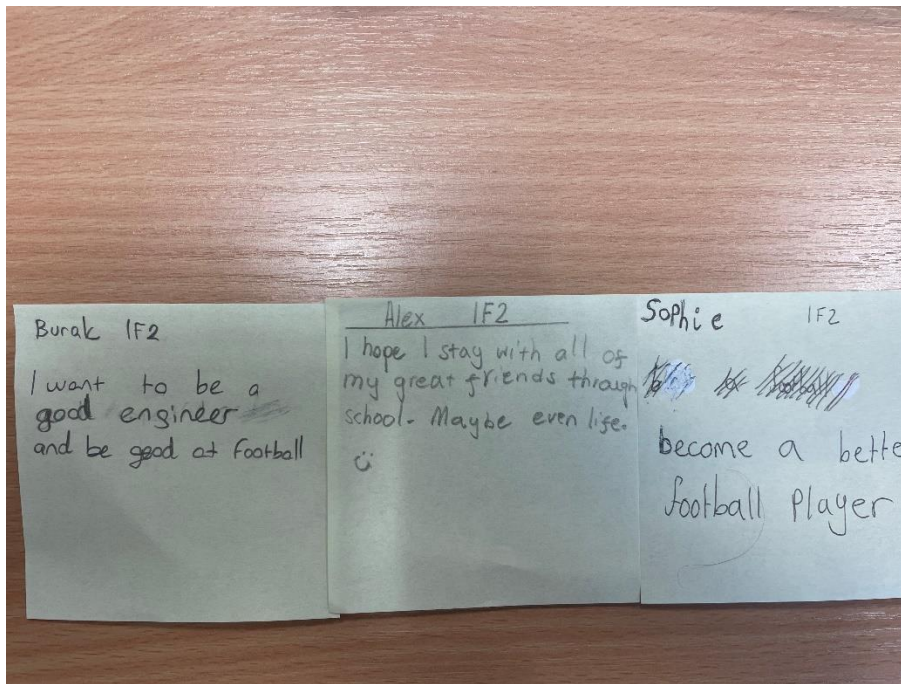 Burak 1F2
I want to be a
good engineer
and be good at football
Alex 1F2
I hope I stay with all of
my great friends through
school. Maybe even life.
Sophie 1F2
become a bette
football player